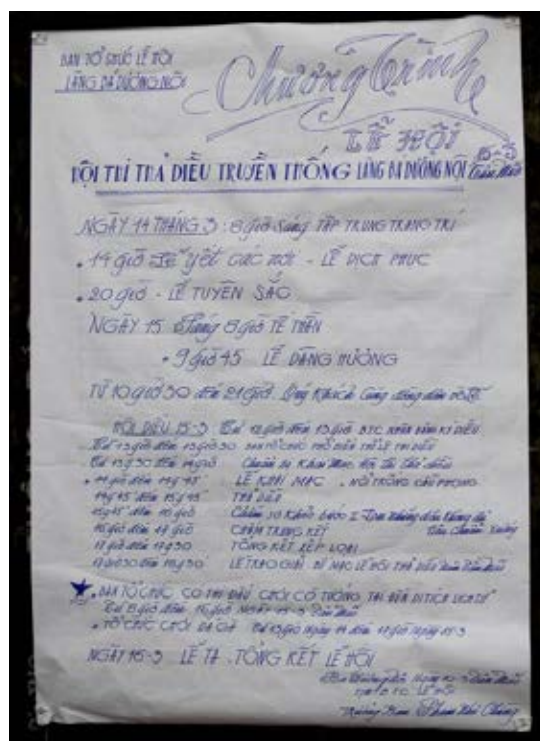 BAN TỔ CHỨC LỄ HỘI
LÀNG BÁ DƯƠNG NỘI
Chương trình
LỄ HỘI
HỘI THI THẢ DIỀU TRUYỀN THỐNG LÀNG BÁ DƯƠNG NỘI 15-3
NGÀY 14 THÁNG 3 : 8 giờ Sáng TẬP TRUNG TRANG TRÍ
• 14 giờ Tế yết các nơi - LỄ DỊCH PHỤC
• 20 giờ - LỄ TUYÊN SẮC
NGÀY 15 Sáng 8 giờ TẾ THẦN
• 9 giờ 45 LỄ DÂNG HƯƠNG
TỪ 10 giờ 30 đến 21 giờ. Quý Khách Cùng dân về lễ
HỘI DIỀU 15-3 Từ 12 giờ đến 13 giờ BTC NHẬN ĐĂNG KÍ DIỀU
Từ 13 giờ đến 13 giờ 30 BAN TỔ CHỨC PHỔ BIẾN THỂ LỆ THI DIỀU
Từ 13 giờ 30 đến 14 giờ Chuẩn bị Khai Mạc Hội thi thả diều
• 14 giờ đến 14 giờ 45 LỄ KHAI MẠC . NỔI TRỐNG CẦU PHONG
14 giờ 45 đến 15 giờ 45 THẢ DIỀU
15 giờ 45 đến 16 giờ Chấm sơ khảo bước I
16 giờ đến 17 giờ CHẤM CHUNG KẾT
17 giờ đến 17 giờ 30 TỔNG KẾT XẾP LOẠI
17 giờ 30 đến 18 giờ 30 LỄ TRAO GIẢI BẾ MẠC LỄ HỘI THẢ DIỀU
• BAN TỔ CHỨC CÓ THI ĐẤU CHƠI CỜ TƯỚNG TẠI ĐỀN DI TÍCH LỊCH SỬ
Từ 8 giờ đến 16 giờ NGÀY 15-3
• TỔ CHỨC CHƠI ĐÁ GÀ Từ 13 giờ Ngày 14 đến 17 giờ ngày 15-3
NGÀY 16-3 LỄ TẠ . TỔNG KẾT LỄ HỘI
T/M B TC LỄ HỘI
Trưởng Ban